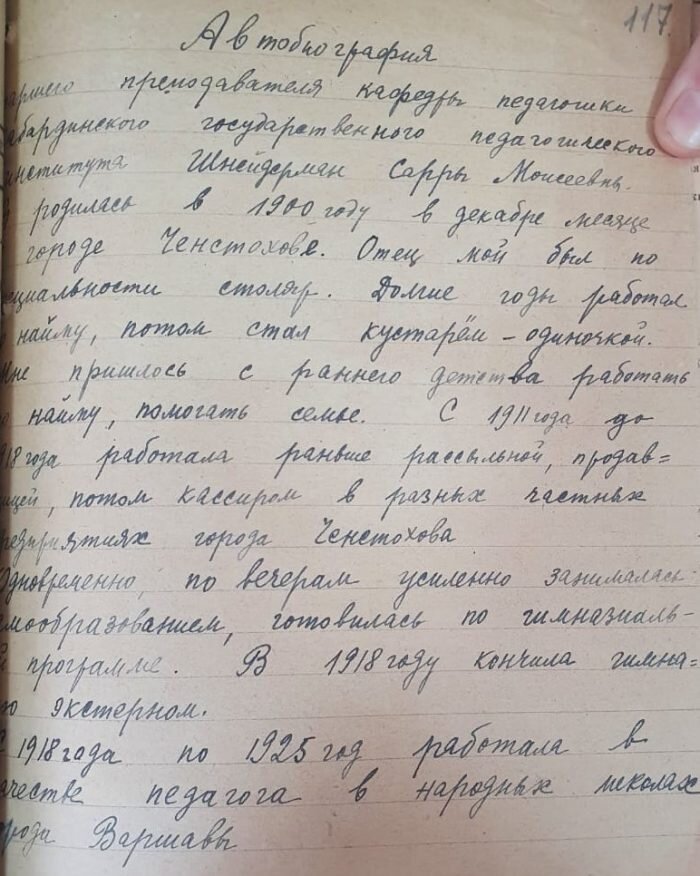 117
Автобиография
аршего преподавателя кафедры педагогики
абардинского государственного педагогического
института Шнейдерман Сарры Моисеевны.
родилась в 1900 году в декабре месяце
городе Ченстохове. Отец мой был по
ециальности столяр. Долгие годы работал
о найму, потом стал кустарём – одиночкой.
мне пришлось с раннего детства работать
о найму, помогать семье. С 1911 года до
918 года работала раньше рассыльной, продав=
ицей, потом кассиром в разных частных
редприятиях города Ченстохова
Одновременно, по вечерам усиленно занималась
амообразованием, готовилась по гимназиаль-
й программе. В 1918 году кончила гимна=
ю экстерном.
С 1918 года по 1925 год работала в
ачестве педагога в народных школах
орода Варшавы